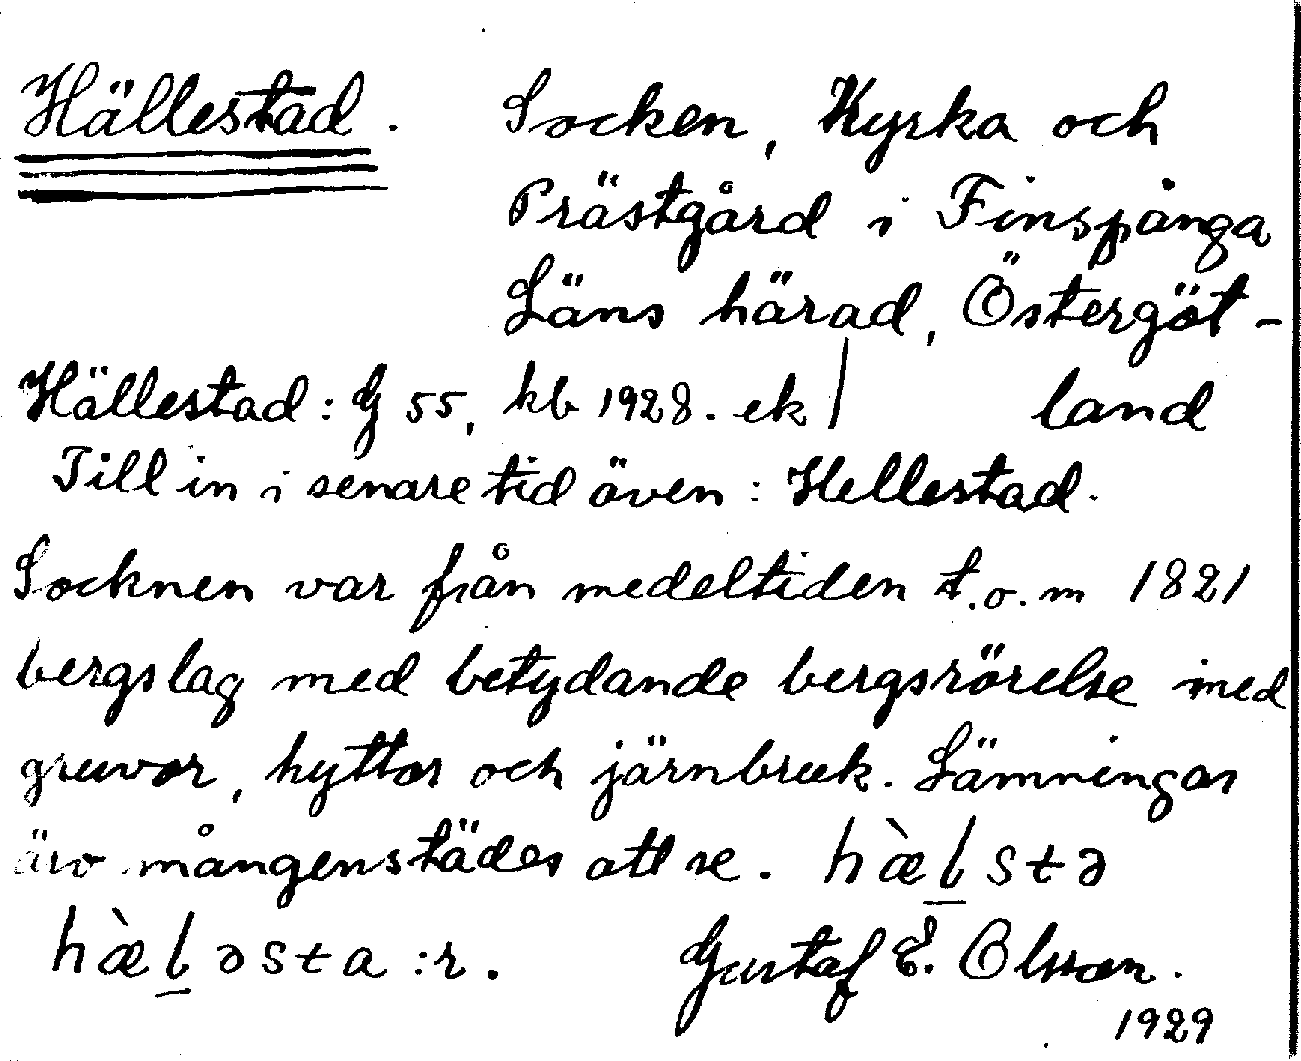 Hällestad. Socken, Kyrka och
Prästgård i Finspånga
Läns härad, Östergöt-
land
Hällestad: G 55, kb 1928. ek
Till in i senare tid även: Hellestad.
Socknen var från medeltiden t.o.m 1821
bergslag med betydande bergsrörelse med
gruvor, hyttor och järnbruk. Lämningar
äro mångenstädes att se. hæ̀l̲stə
hæ̀l̲əsta:r. Gustaf E. Olsson.
1929